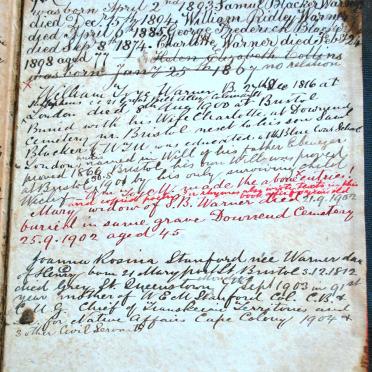 was born April 2nd 1893 Samuel Blacker Warner
died Dec 15th 1894. William Ridley Warner
died April 6 1885 George Frederick Blacker
died Sep 8 1874. Charlotte Warner died Feb 24
1898 aged 77
Helen Elizabeth Collins
was born Jany 25th 1867 no relation
William Tyson Warner B. 27 Dec 1816 at
London died 1900 at Bristol
Buried with his Wife Charlotte, at Downend
Cemetery nr. Bristol next to his son Saml
Blacker. WTW was educated at the Blue Coat School
London and named in Will of his Father Ebenezer
proved 1866 Bristol his own Will was proved
at Bristol by his only surviving child
made the above entries!
and copied poetry rhymes also wrote texts in this
book
Mary widow of S.B. Warner Died 21.9.1902
buried in same grave Downend Cemetery
25.9.1902 aged 45
Joanna Rosina Stanford née Warner dau
of Henry born 21 Mary St Bristol 3.12.1812
died Grey St Queenstown Sept 1903 in 91st
year mother of W.E.M. Stanford Col. C.B. &
C.M.G. Chief of Transkeian Territories and
for Native Affairs Cape Colony 1904 &
3 other Civil Servants